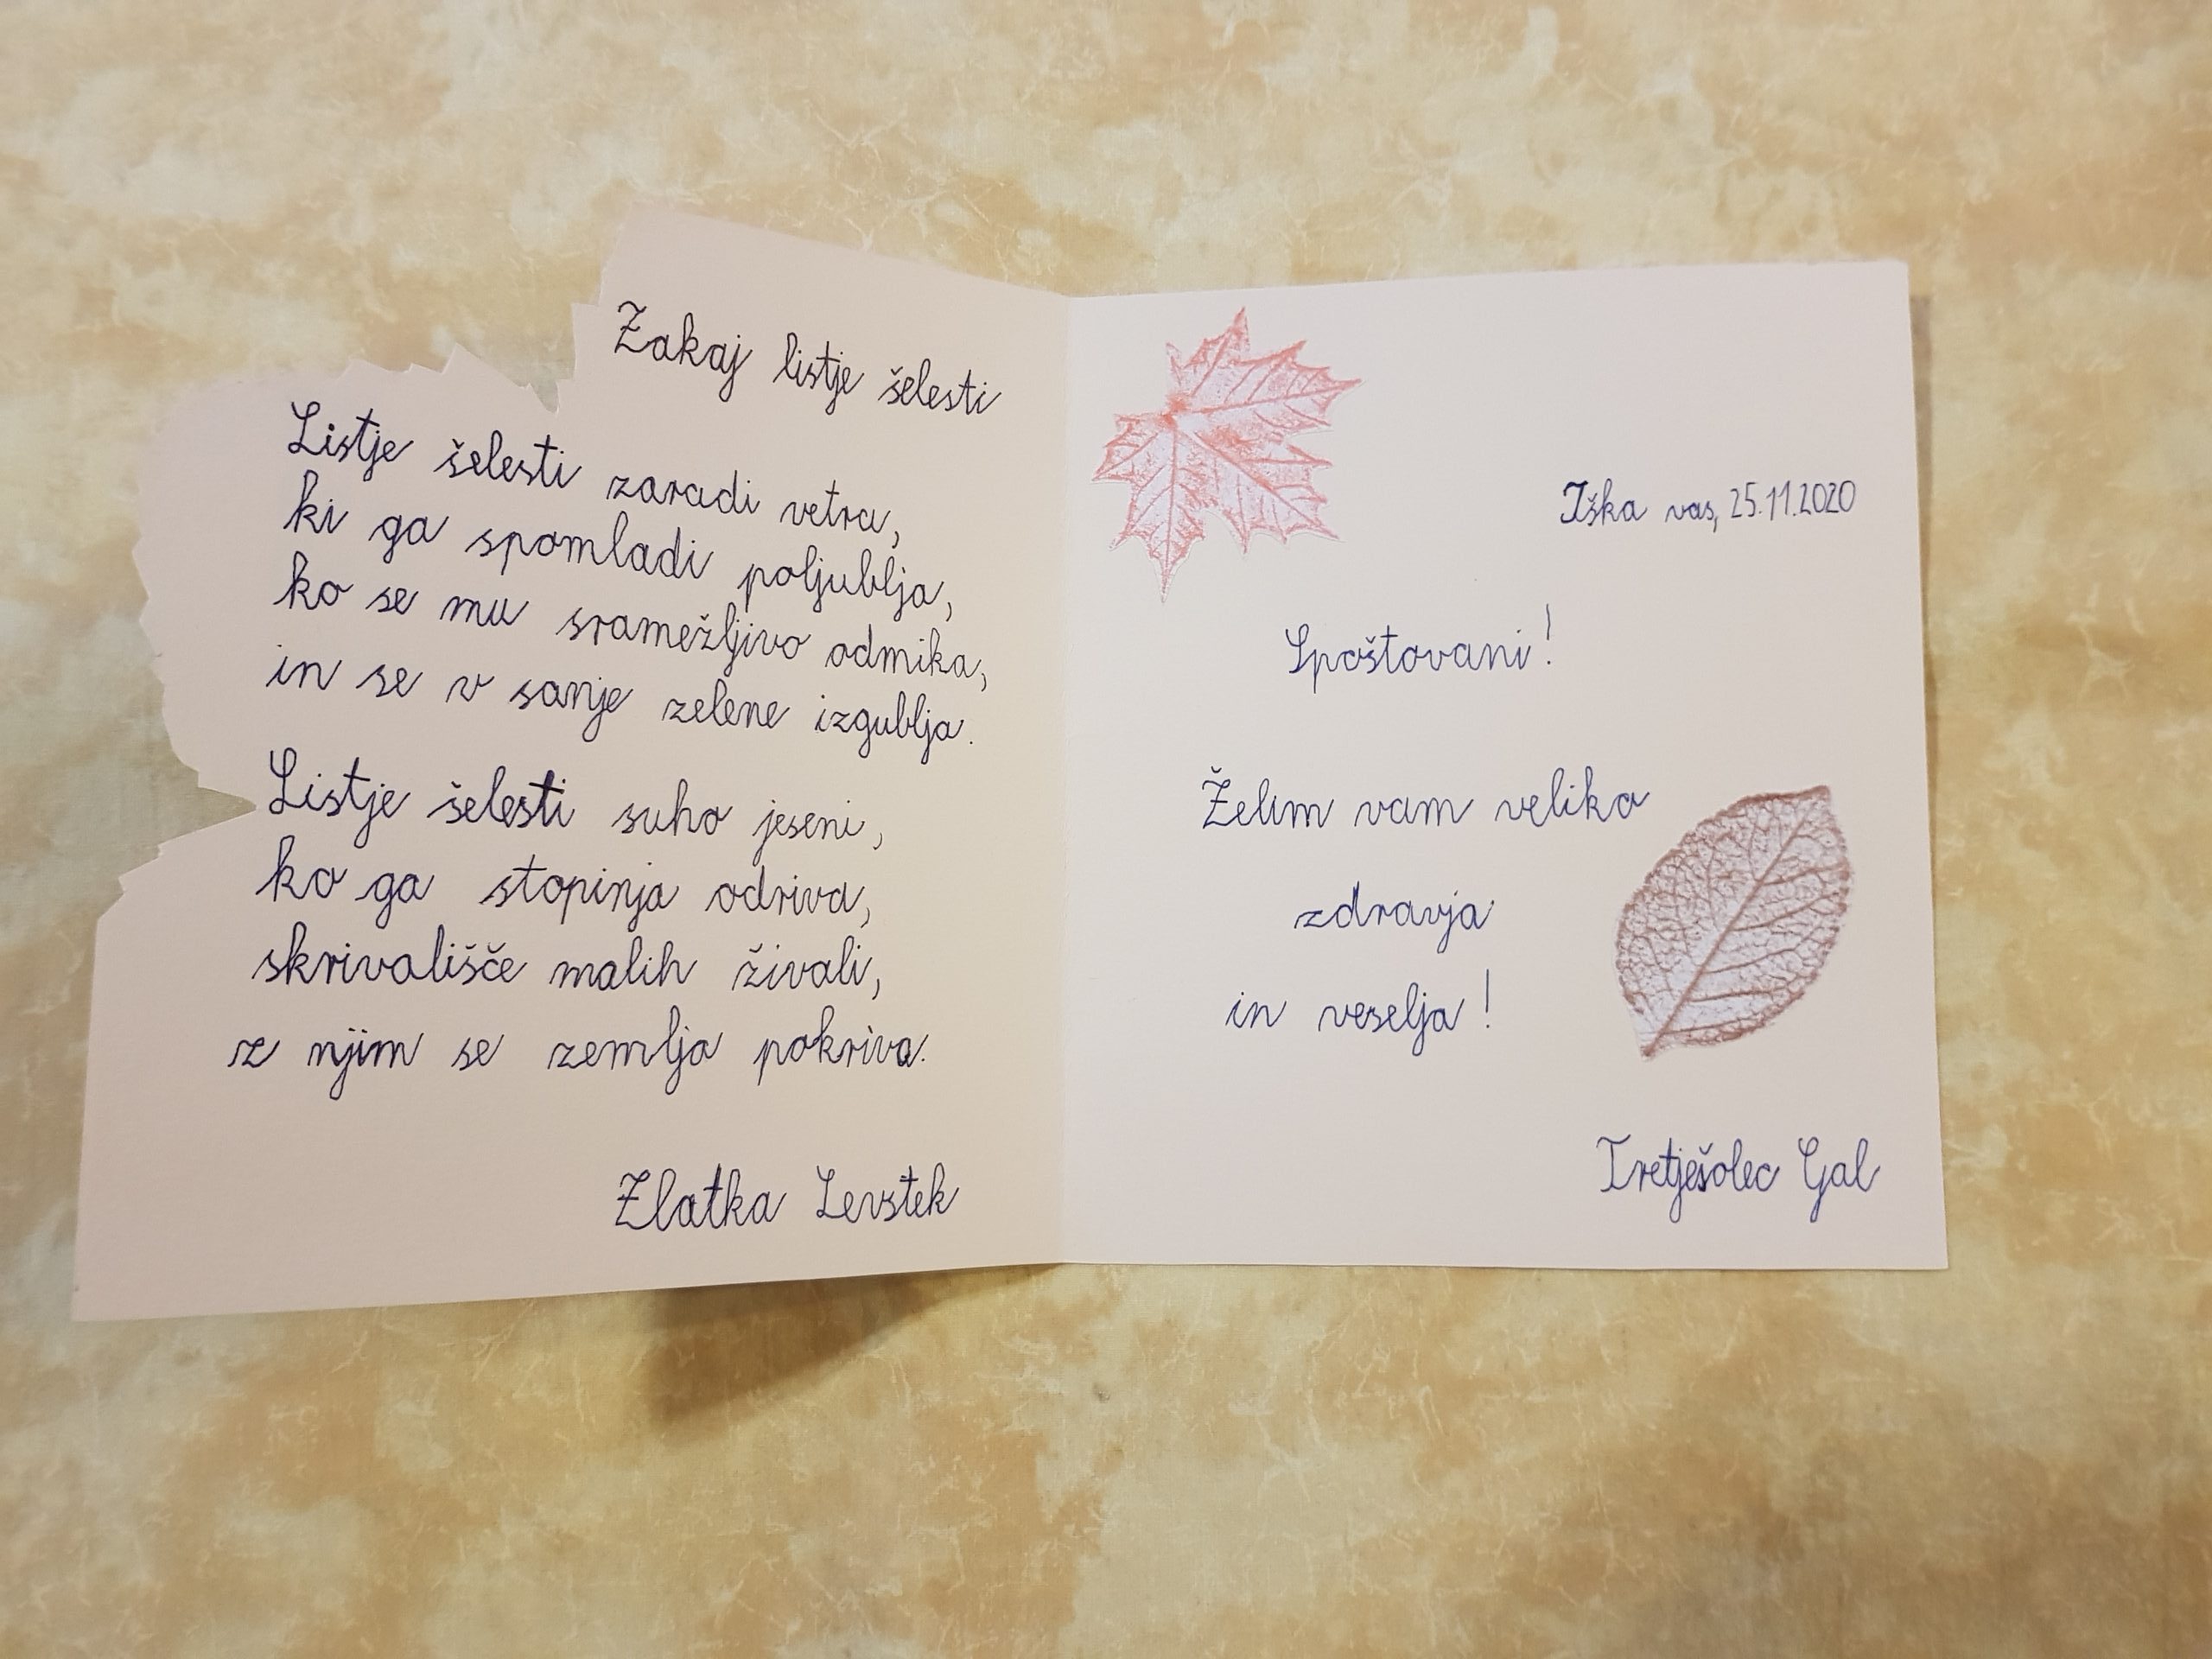 Zakaj listje šelesti
Listje šelesti zaradi vetra,
ki ga spomladi poljublja,
ko se mu sramežljivo odmika,
in se v sanje zelene izgublja.
Listje šelesti suho jeseni,
ko ga stopinja odriva,
skrivališče malih živali,
z njim se zemlja pokriva.
Zlatka Levstek
Iška vas, 25.11.2020
Spoštovani!
Želim vam veliko
zdravja
in veselja!
Tretješolec Gal